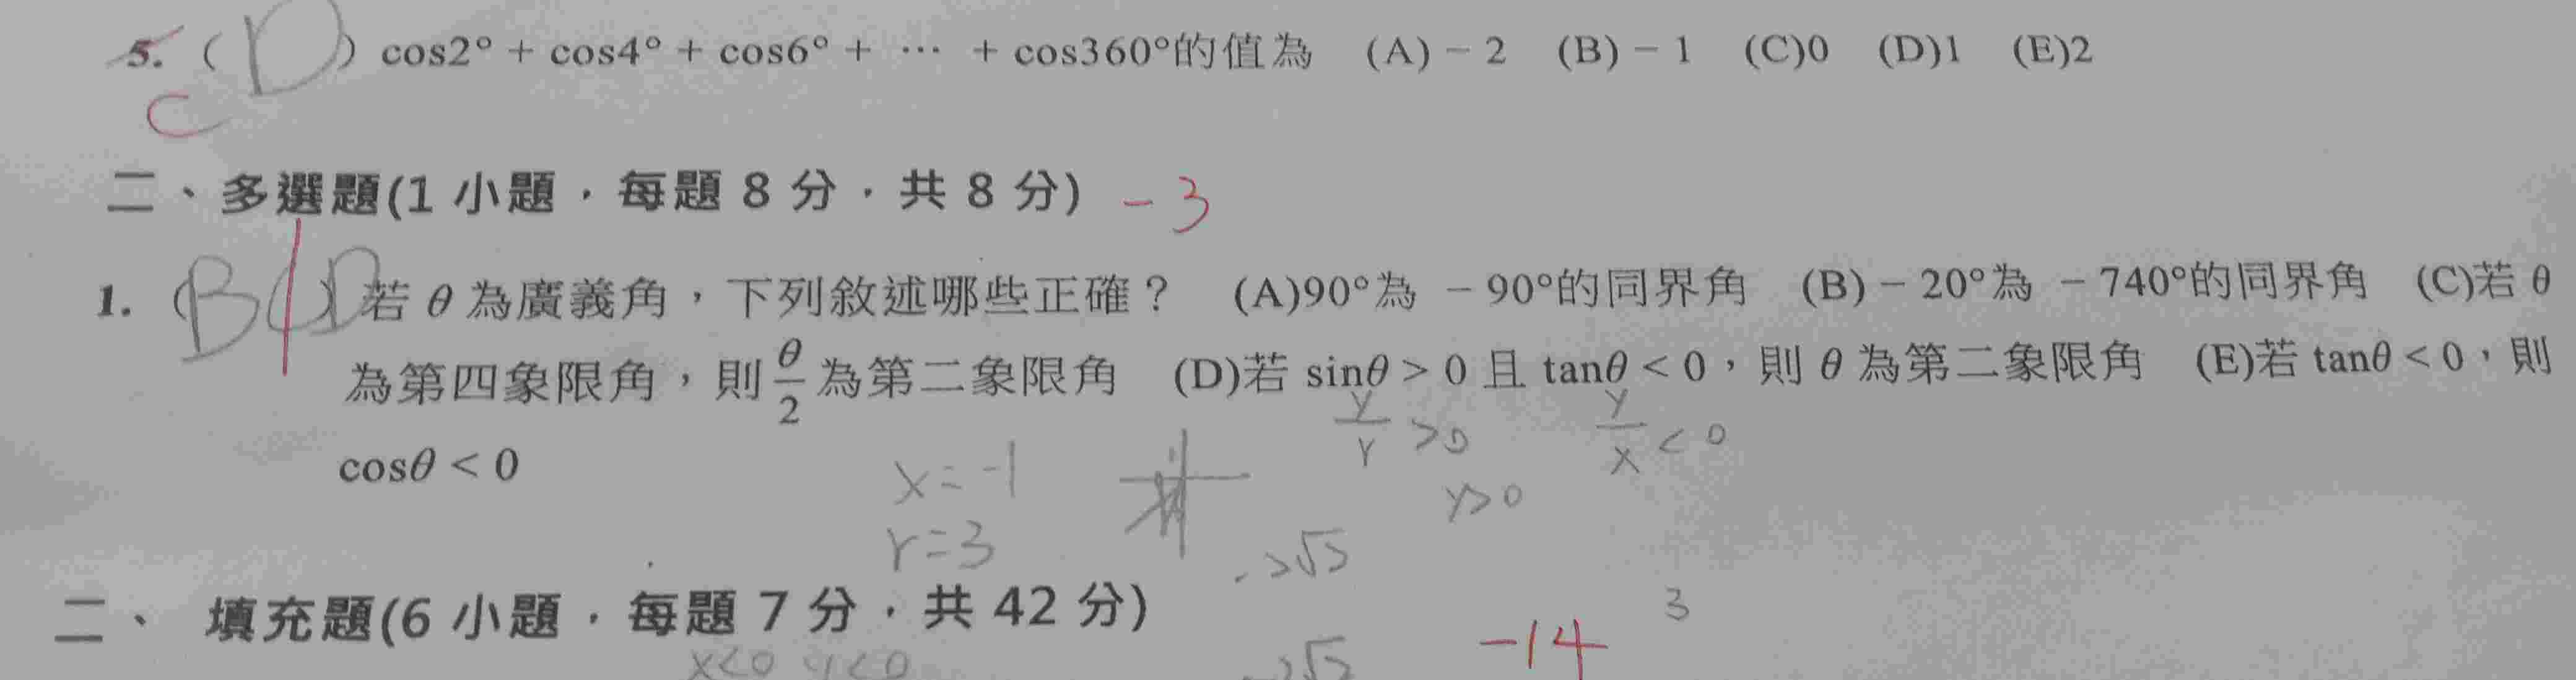 5. (D) cos2° + cos4° + cos6° + ⋯ + cos360°的值為 (A)－2 (B)－1 (C)0 (D)1 (E)2
C
二、多選題(1 小題，每題 8 分，共 8 分) -3
1. (BCD)若 θ 為廣義角，下列敘述哪些正確？ (A)90°為 －90°的同界角 (B)－20°為 －740°的同界角 (C)若 θ
為第四象限角，則 θ/2 為第二象限角 (D)若 sinθ > 0 且 tanθ < 0，則 θ 為第二象限角 (E)若 tanθ < 0，則
cosθ < 0
y/r >0 y/x <0
x=-1
y>0
r=3
二、 填充題(6 小題，每題 7 分，共 42 分)
3
-14
x<0 y<0